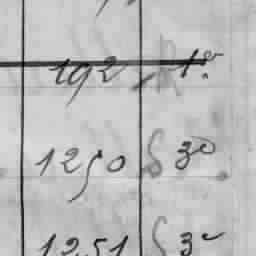 192 R 1º
1250 S 3º
1251 S 3º